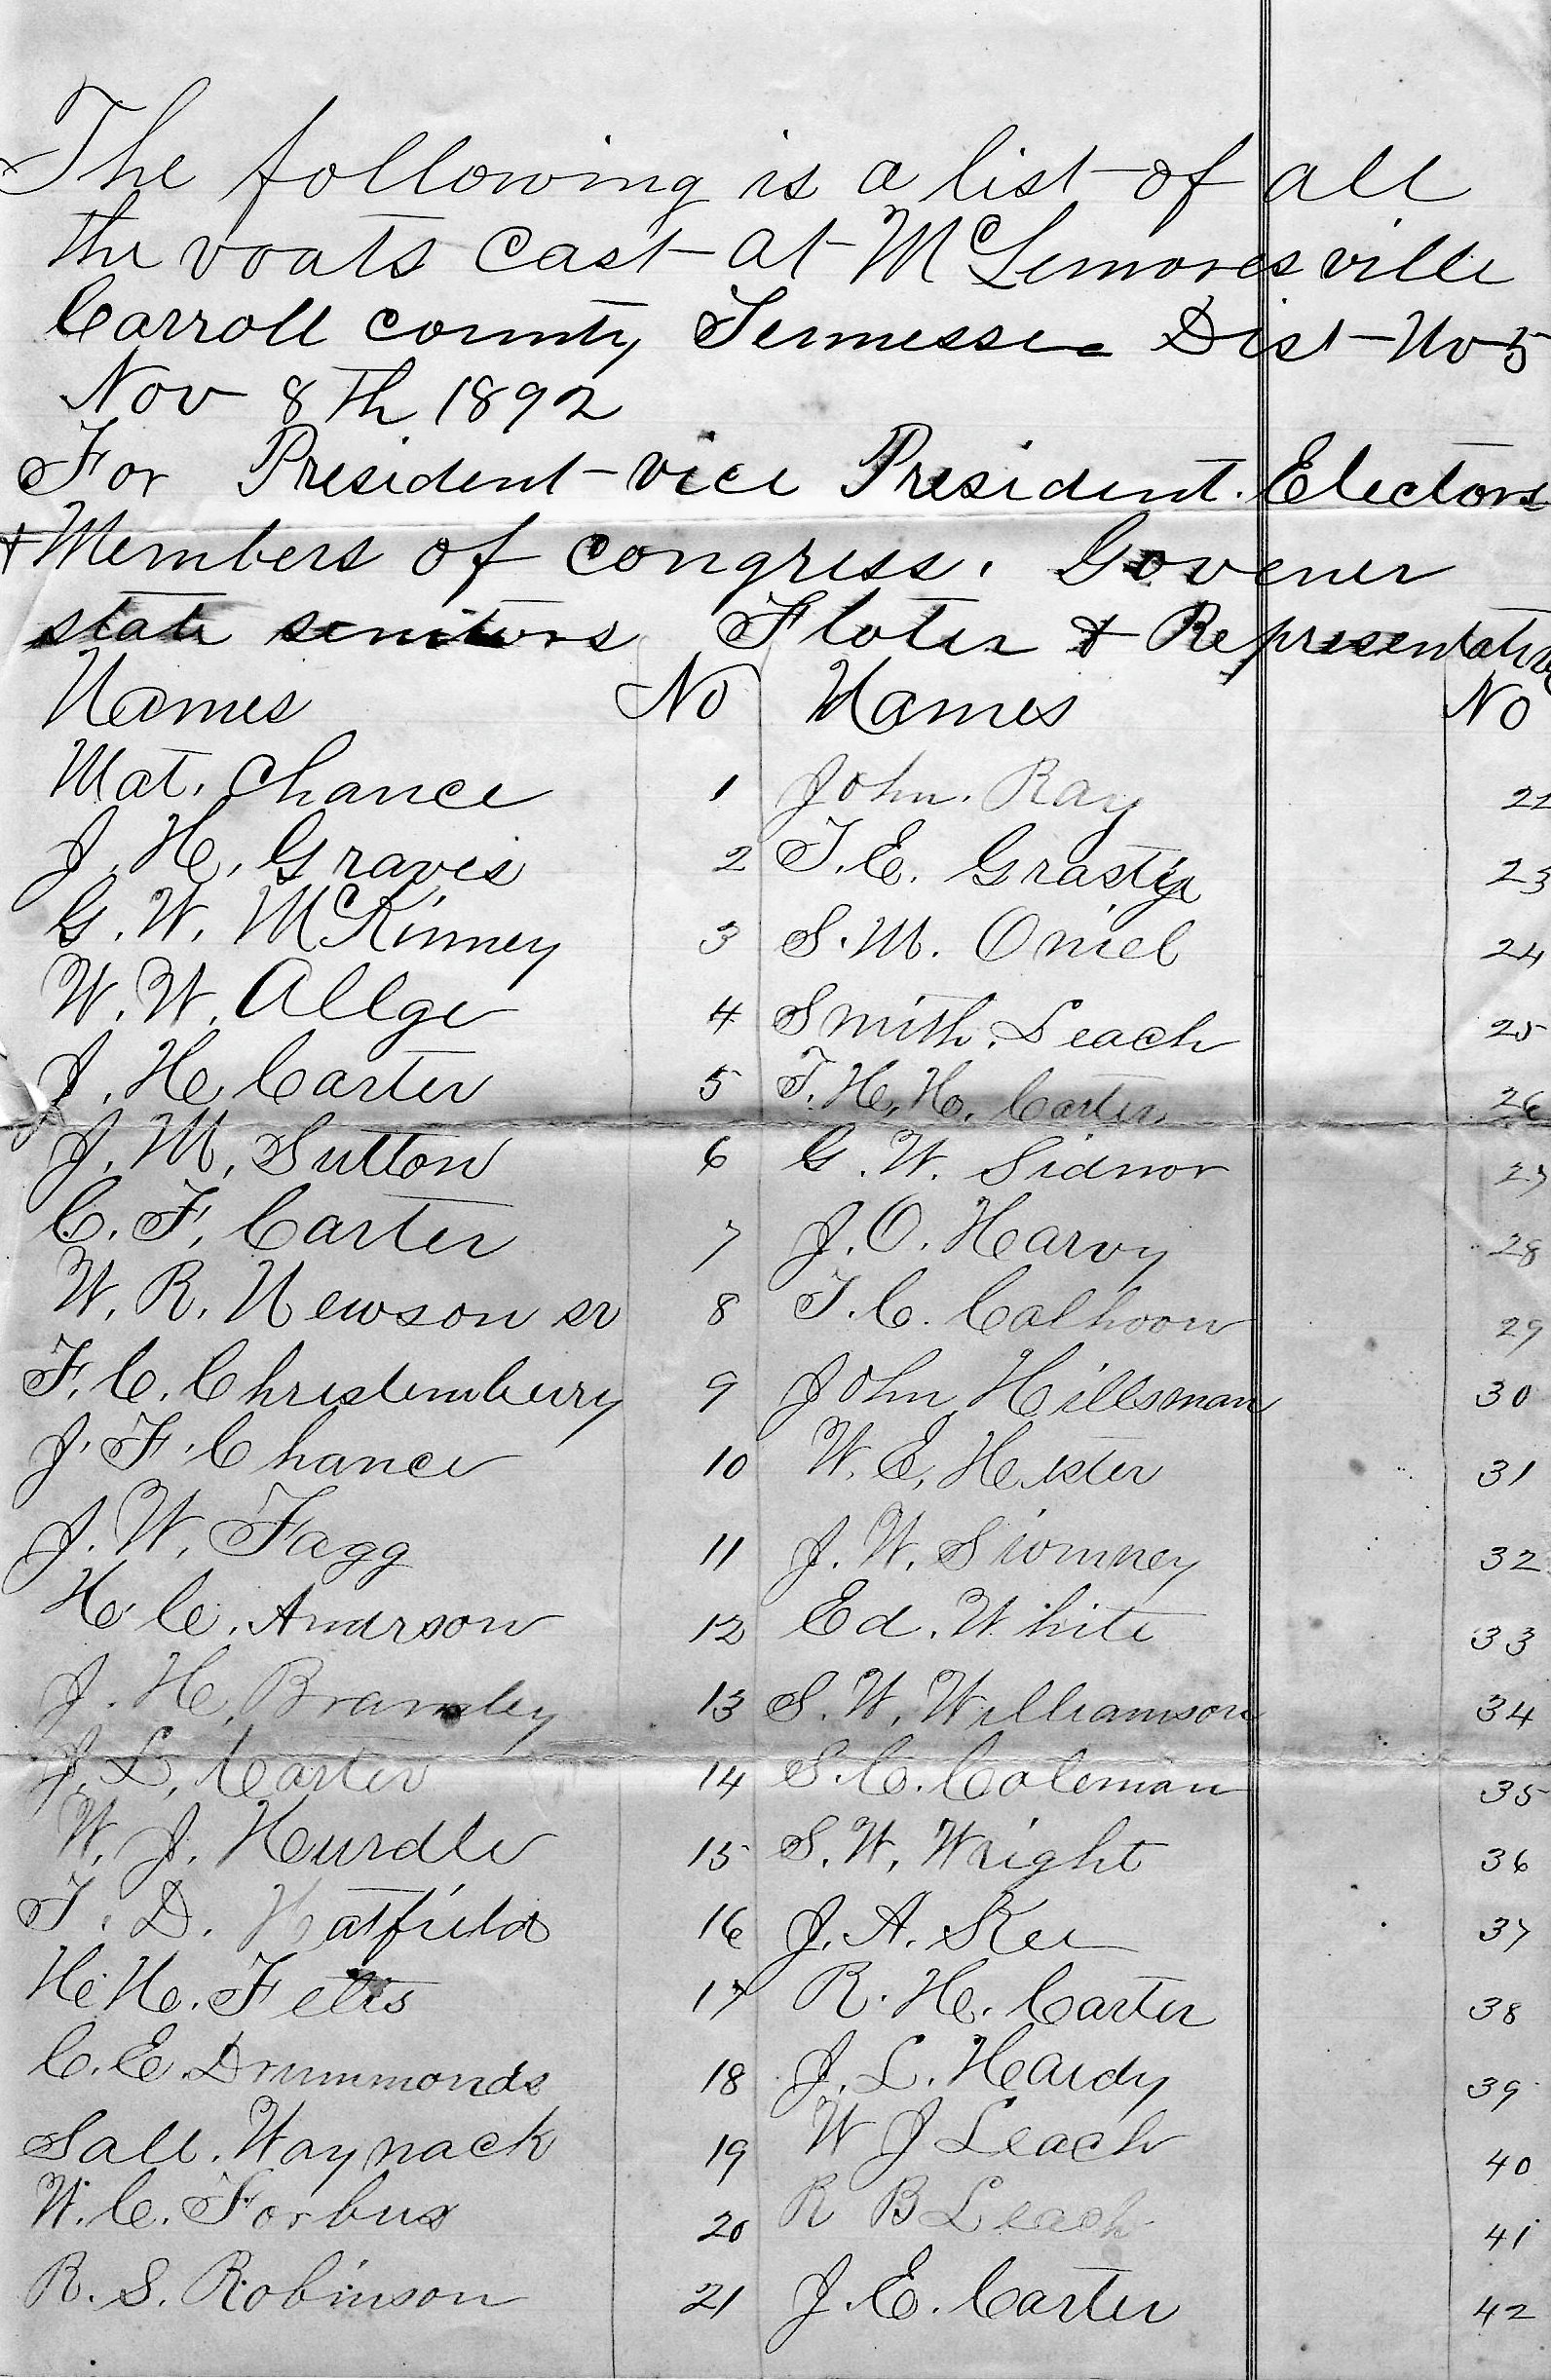 The following is a list of all
the voats cast at McLemoresville
Carroll county Tennessee Dist No 5
Nov 8th 1892
For President vice President. Electors
& Members of congress. Govener
state senitors Floter & Representative
Names No Names No
Mat. Chance 1 John. Ray 22
J. H. Graves 2 T. E. Grasty 23
G. W. McKinney 3 S. M. Oniel 24
W. W. Allge 4 Smith. Leach 25
J. H. Carter 5 T. H. H. Carter 26
J. M. Sutton 6 G. W. Sidnor 27
C. F. Carter 7 J. O. Harvy 28
W. R. Newson sr 8 T. C. Calhoon 29
F. C. Christenbury 9 John Hillsman 30
J. F. Chance 10 W. E. Hester 31
J. W. Fagg 11 J. W. 32
H. C. Andrson 12 Ed. White 33
J. H. Bramley 13 S. W. Williamson 34
J. L. Carter 14 S. C. Coleman 35
W. J. Hurdle 15 S. W. Wright 36
T. D. Hatfield 16 J. A. Kee 37
H. H. Felts 17 R. H. Carter 38
C. E. Drummonds 18 J. L. Hardy 39
Sall. Waynack 19 W J Leach 40
W. C. Forbus 20 R B Leach 41
R. S. Robinson 21 J. E. Carter 42